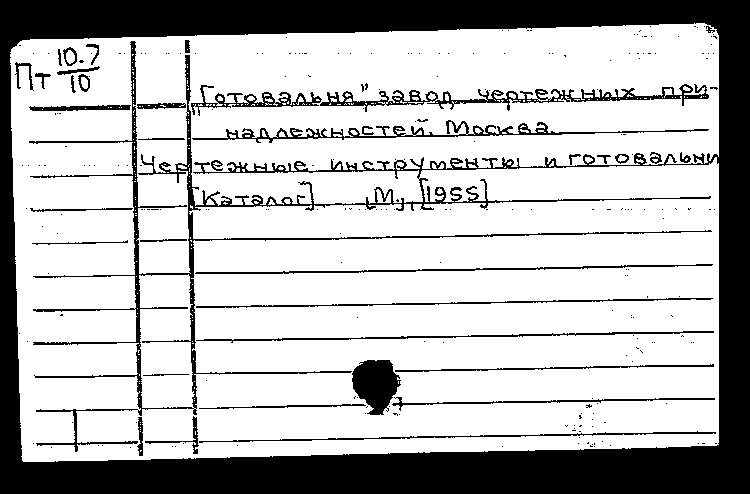 Пт 10.7/10
„Готовальня", завод чертежных при-
надлежностей. Москва.
Чертежные инструменты и готовальни
[Каталог] [М.], [1955]